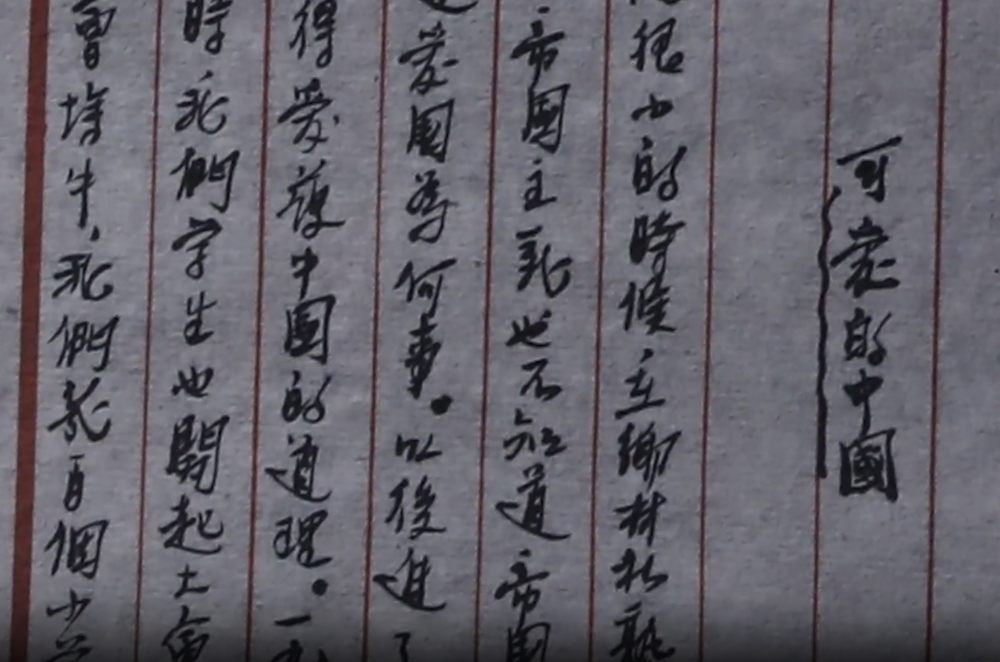 可愛的中國
很小的時候在鄉村私塾
帝國主義也不知道帝國
愛國為何事。以後進了
得愛護中國的道理。一
時我們学生也開起大會
曾増牛,我們幾百個小